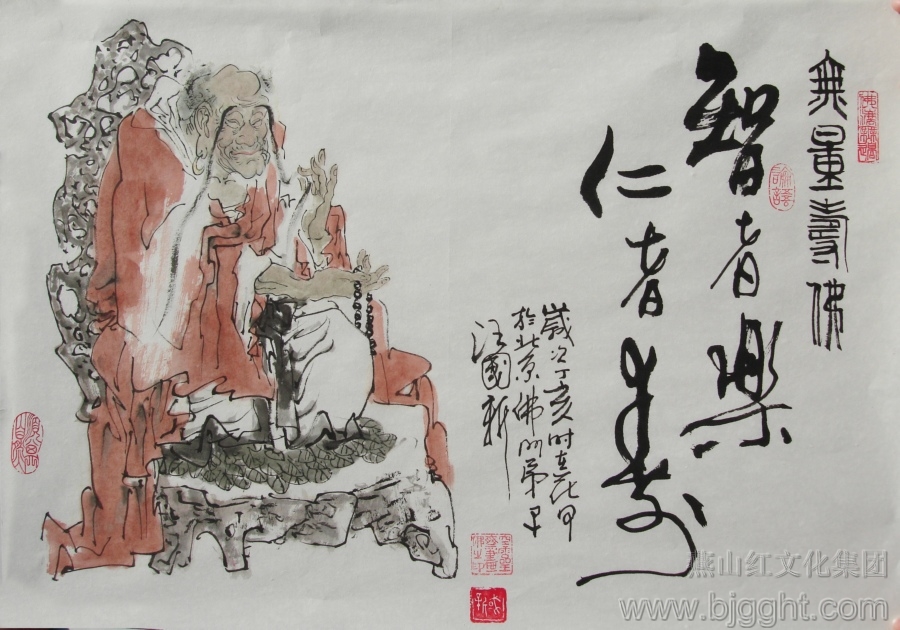 無量壽佛
智者樂
仁者壽
歲次丁亥時在花月
於北京佛門弟子
汪國新
國新
燕山红文化集团
www.bjgght.com